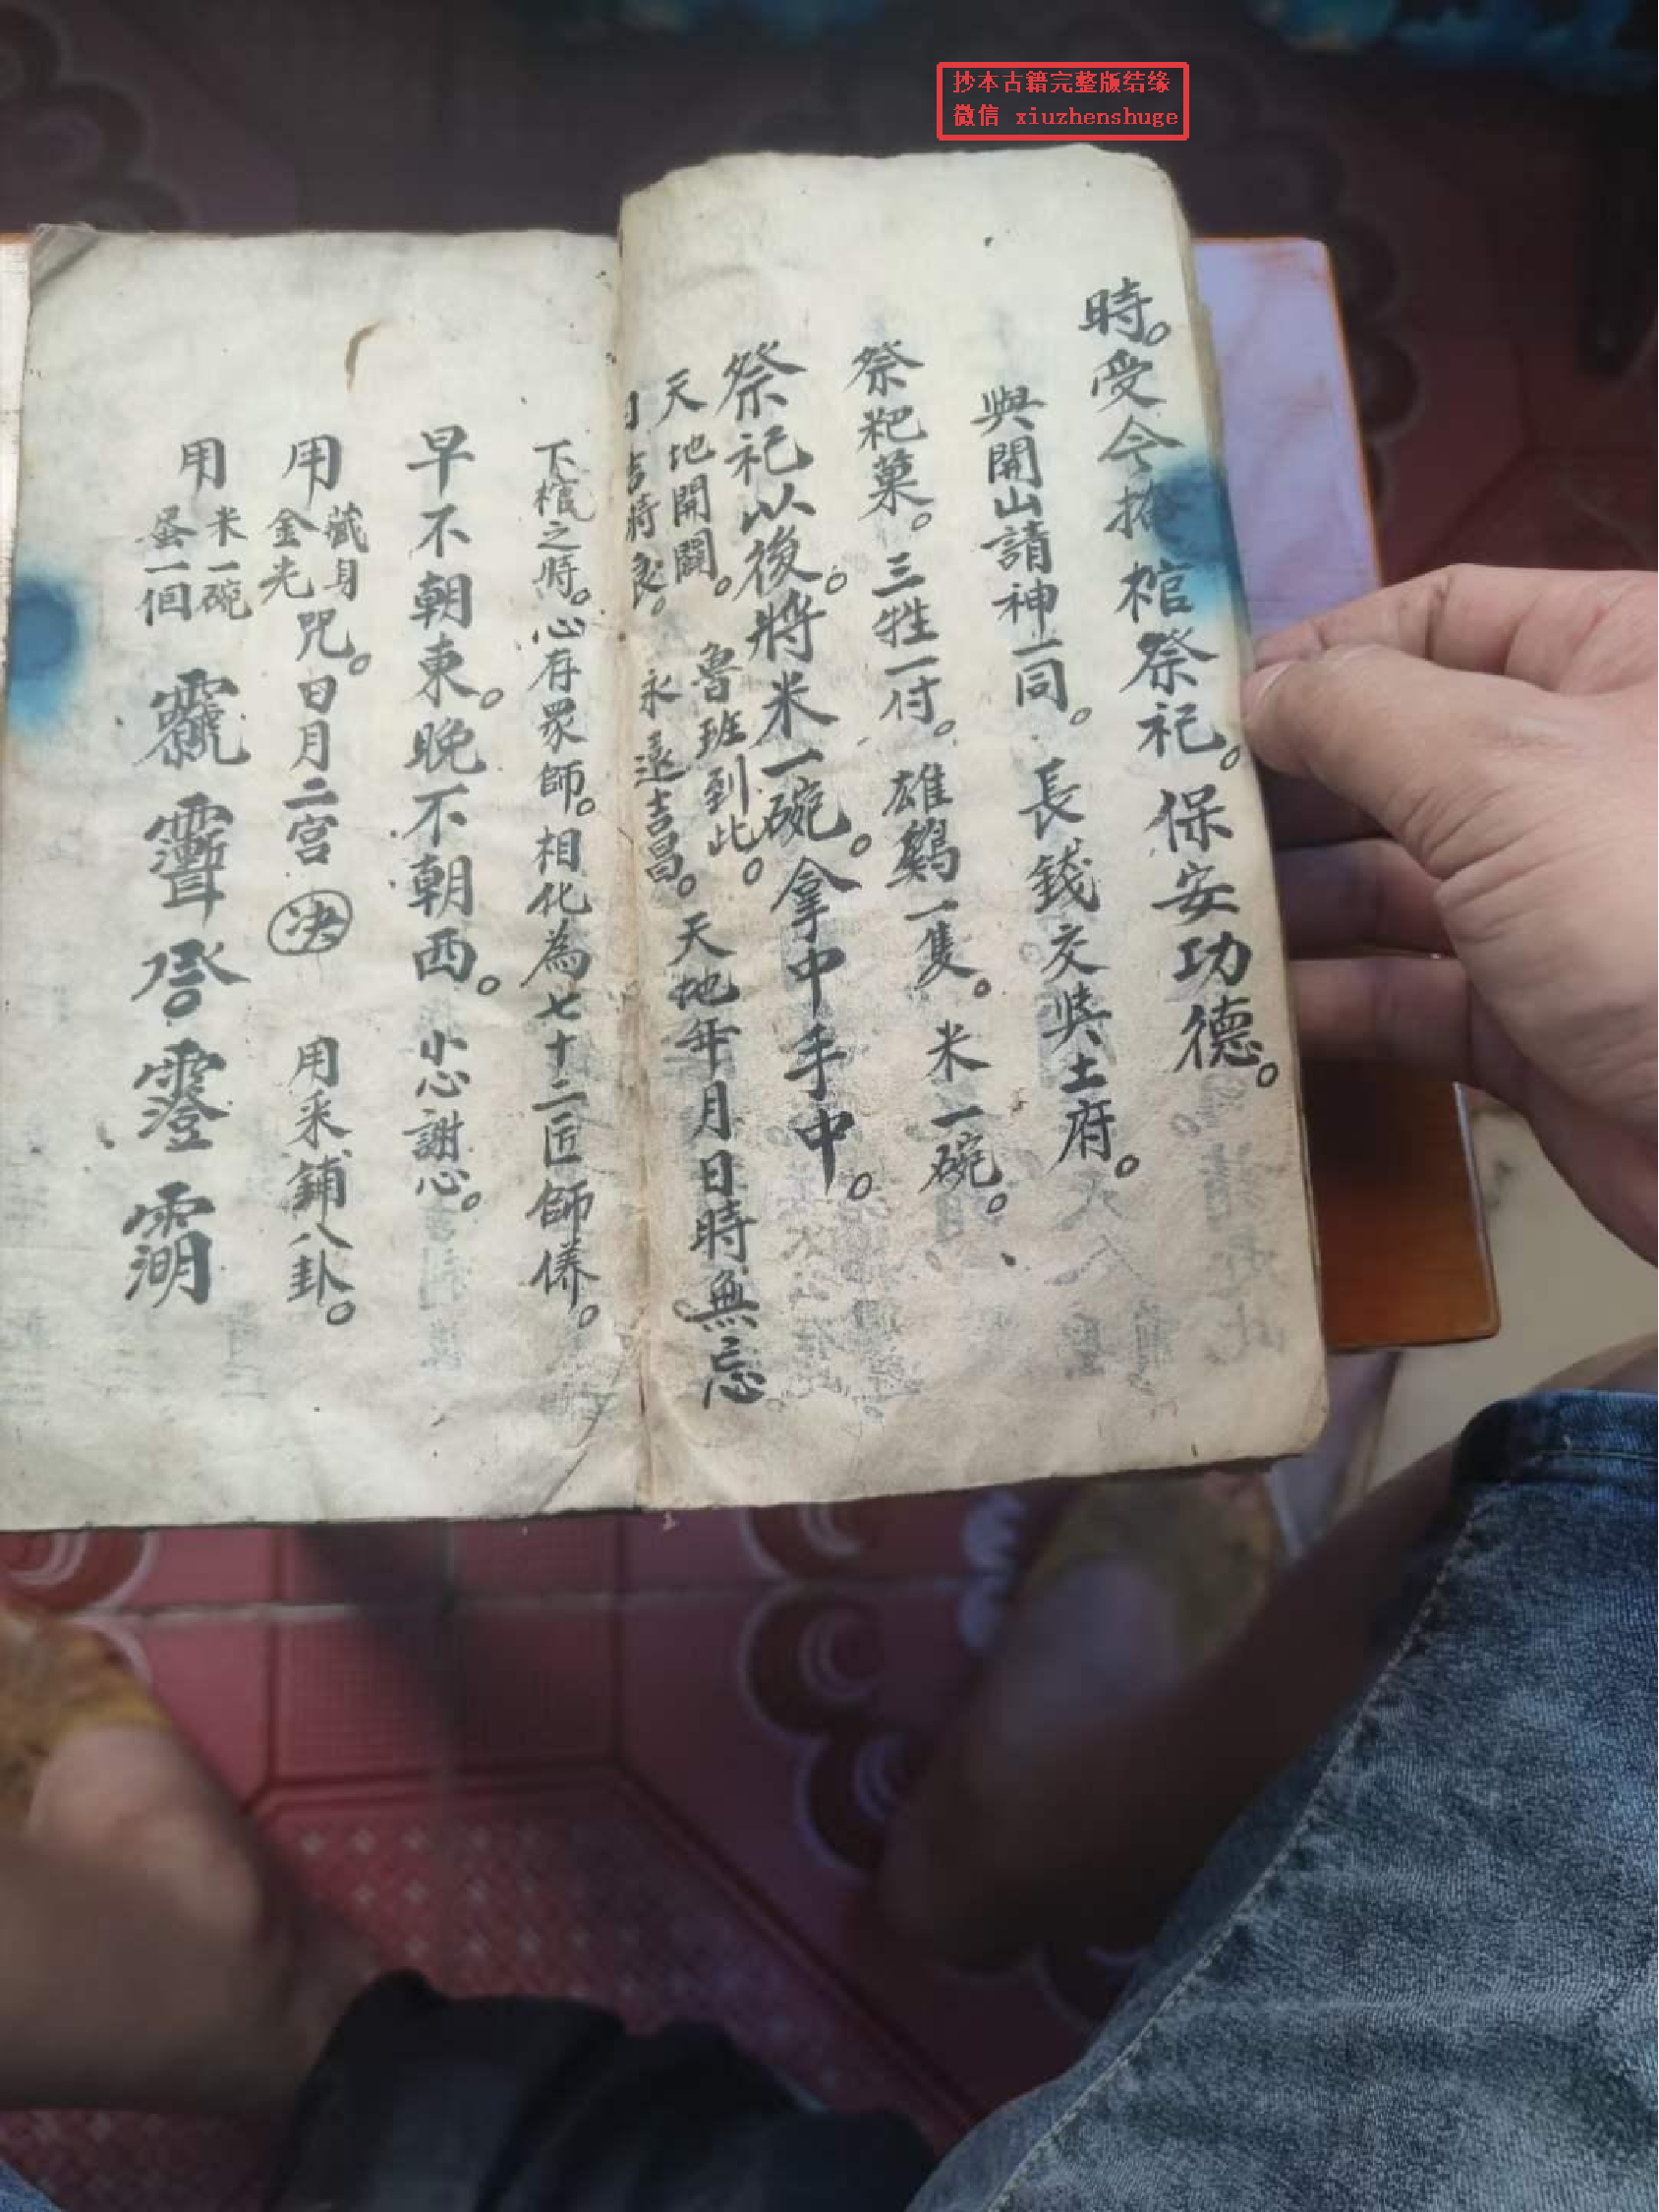 抄本古籍完整版结缘
微信 xiuzhenshuge
時。受令棺祭祀。保安功德。
與開山請神一同。長錢交與土府。
祭粑菓。三牲一付。雄鷄一隻。米一碗。
祭祀以後。將米一碗。拿中手中。
天地開闢。魯班到此。天地年月日時無忌
日吉時良。永遠吉昌。
下棺之時。心存眾師。相化為七十二匠師俤。
早不朝東。晚不朝西。小心謝心。
用藏身金光咒。日月二宮决 用釆鋪八卦。
用米一碗蛋一個